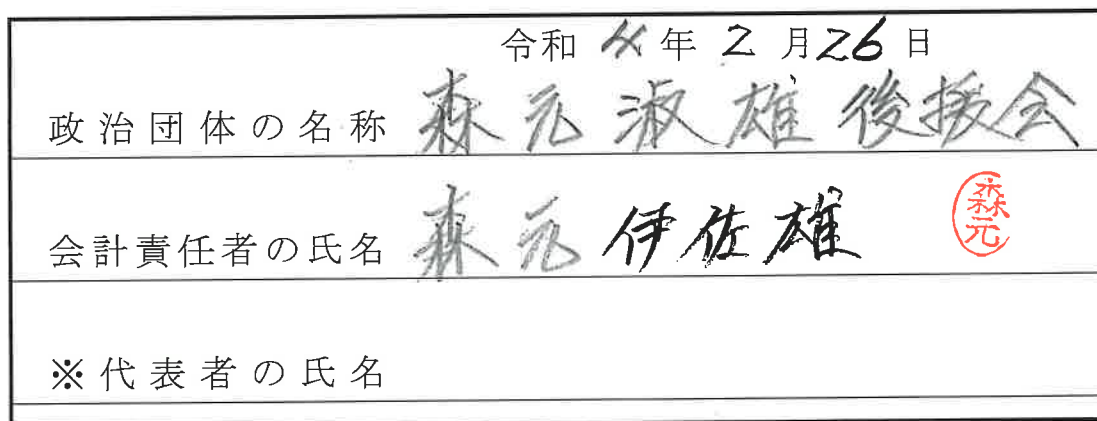 令和 4 年 2 月 26 日
政治団体の名称 森元淑雄後援会
会計責任者の氏名 森元伊佐雄 森元
※代表者の氏名